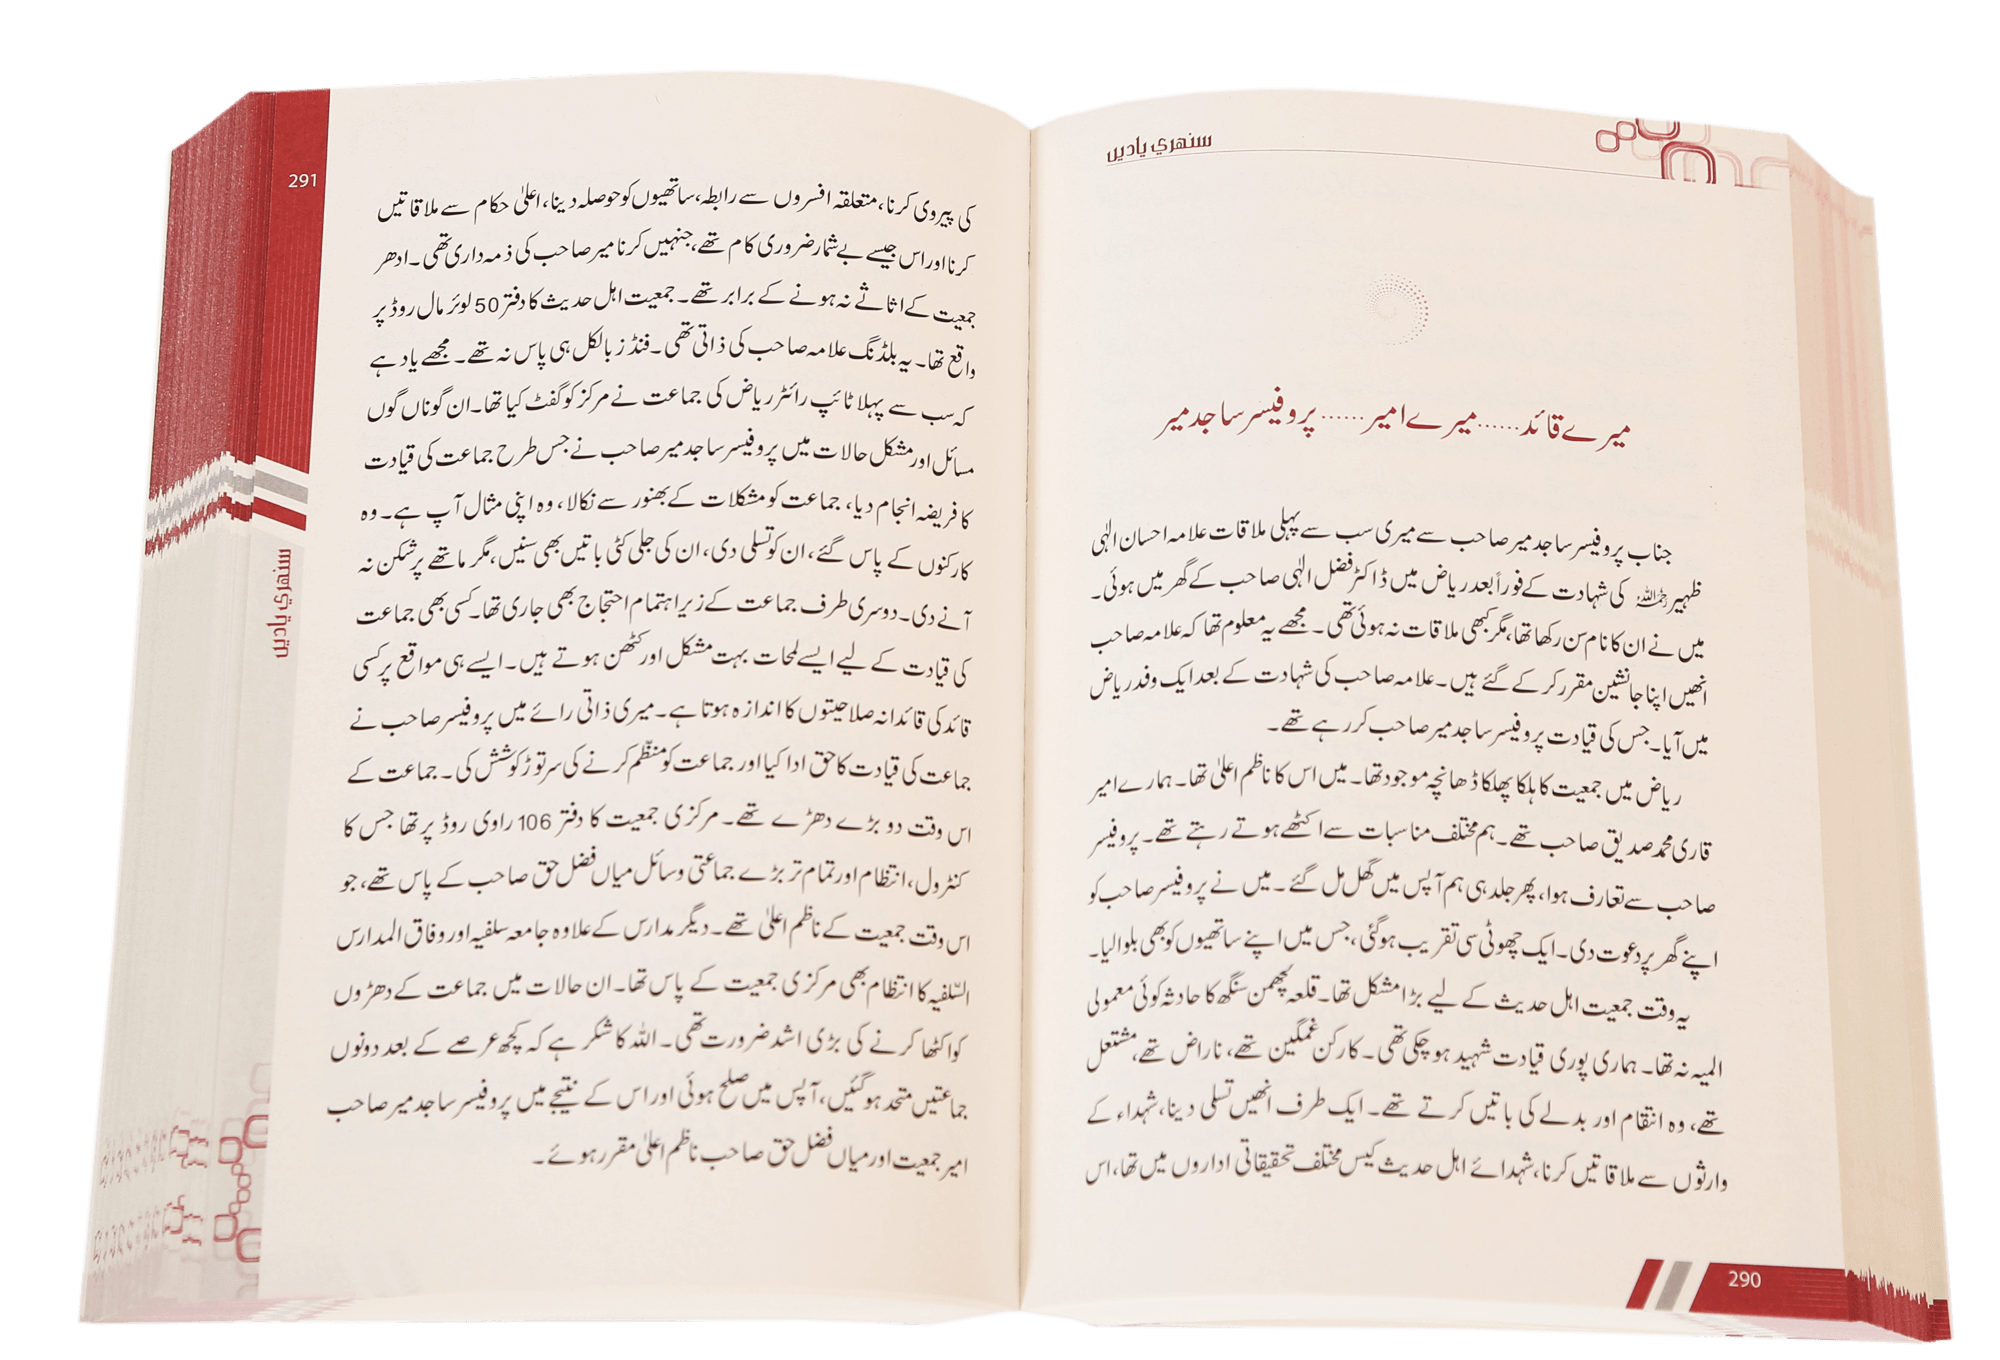 سنهري يادين
میرے قائد......میرے امیر...... پروفیسر ساجد میر
جناب پروفیسر ساجد میر صاحب سے میری سب سے پہلی ملاقات علامہ احسان الٰہی
ظہیر رحمۃ اللہ کی شہادت کے فوراً بعد ریاض میں ڈاکٹر فضل الٰہی صاحب کے گھر میں ہوئی۔
میں نے ان کا نام سن رکھا تھا، مگر کبھی ملاقات نہ ہوئی تھی۔ مجھے یہ معلوم تھا کہ علامہ صاحب
انھیں اپنا جانشین مقرر کر کے گئے ہیں۔ علامہ صاحب کی شہادت کے بعد ایک وفد ریاض
میں آیا۔ جس کی قیادت پروفیسر ساجد میر صاحب کر رہے تھے۔
ریاض میں جمعیت کا ہلکا پھلکا ڈھانچہ موجود تھا۔ میں اس کا ناظم اعلیٰ تھا۔ ہمارے امیر
قاری محمد صدیق صاحب تھے۔ ہم مختلف مناسبات سے اکٹھے ہوتے رہتے تھے۔ پروفیسر
صاحب سے تعارف ہوا، پھر جلد ہی ہم آپس میں گھل مل گئے۔ میں نے پروفیسر صاحب کو
اپنے گھر پر دعوت دی۔ ایک چھوٹی سی تقریب ہو گئی، جس میں اپنے ساتھیوں کو بھی بلوا لیا۔
یہ وقت جمعیت اہل حدیث کے لیے بڑا مشکل تھا۔ قلعہ لچھمن سنگھ کا حادثہ کوئی معمولی
المیہ نہ تھا۔ ہماری پوری قیادت شہید ہو چکی تھی۔ کارکن غمگین تھے، ناراض تھے، مشتعل
تھے، وہ انتقام اور بدلے کی باتیں کرتے تھے۔ ایک طرف انھیں تسلی دینا، شہداء کے
وارثوں سے ملاقاتیں کرنا، شہدائے اہل حدیث کیس مختلف تحقیقاتی اداروں میں تھا، اس
290
291
سنهري يادين
کی پیروی کرنا، متعلقہ افسروں سے رابطہ، ساتھیوں کو حوصلہ دینا، اعلیٰ حکام سے ملاقاتیں
کرنا اور اس جیسے بے شمار ضروری کام تھے، جنہیں کرنا میر صاحب کی ذمہ داری تھی۔ ادھر
جمعیت کے اثاثے نہ ہونے کے برابر تھے۔ جمعیت اہل حدیث کا دفتر 50 لوئر مال روڈ پر
واقع تھا۔ یہ بلڈنگ علامہ صاحب کی ذاتی تھی۔ فنڈز بالکل ہی پاس نہ تھے۔ مجھے یاد ہے
کہ سب سے پہلا ٹائپ رائٹر ریاض کی جماعت نے مرکز کو گفٹ کیا تھا۔ ان گوناں گوں
مسائل اور مشکل حالات میں پروفیسر ساجد میر صاحب نے جس طرح جماعت کی قیادت
کا فریضہ انجام دیا، جماعت کو مشکلات کے بھنور سے نکالا، وہ اپنی مثال آپ ہے۔ وہ
کارکنوں کے پاس گئے، ان کو تسلی دی، ان کی جلی کٹی باتیں بھی سنیں، مگر ماتھے پر شکن نہ
آنے دی۔ دوسری طرف جماعت کے زیر اہتمام احتجاج بھی جاری تھا۔ کسی بھی جماعت
کی قیادت کے لیے ایسے لمحات بہت مشکل اور کٹھن ہوتے ہیں۔ ایسے ہی مواقع پر کسی
قائد کی قائدانہ صلاحیتوں کا اندازہ ہوتا ہے۔ میری ذاتی رائے میں پروفیسر صاحب نے
جماعت کی قیادت کا حق ادا کیا اور جماعت کو منظّم کرنے کی سر توڑ کوشش کی۔ جماعت کے
اس وقت دو بڑے دھڑے تھے۔ مرکزی جمعیت کا دفتر 106 راوی روڈ پر تھا جس کا
کنٹرول، انتظام اور تمام تر بڑے جماعتی وسائل میاں فضل حق صاحب کے پاس تھے، جو
اس وقت جمعیت کے ناظم اعلیٰ تھے۔ دیگر مدارس کے علاوہ جامعہ سلفیہ اور وفاق المدارس
السّلفیہ کا انتظام بھی مرکزی جمعیت کے پاس تھا۔ ان حالات میں جماعت کے دھڑوں
کو اکٹھا کرنے کی بڑی اشد ضرورت تھی۔ اللہ کا شکر ہے کہ کچھ عرصے کے بعد دونوں
جماعتیں متحد ہو گئیں، آپس میں صلح ہوئی اور اس کے نتیجے میں پروفیسر ساجد میر صاحب
امیر جمعیت اور میاں فضل حق صاحب ناظم اعلیٰ مقرر ہوئے۔